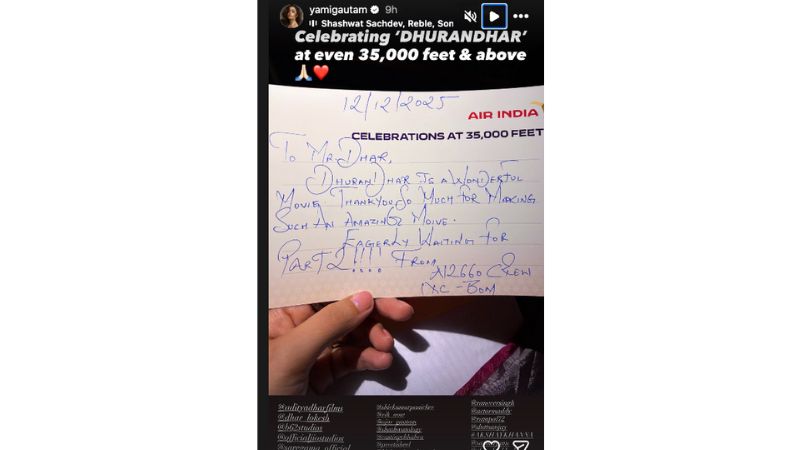 yamigautam 9h
Shashwat Sachdev, Reble, Son
Celebrating ‘DHURANDHAR’
at even 35,000 feet & above
🙏🏻❤️
12/12/2025
AIR INDIA
CELEBRATIONS AT 35,000 FEET
To Mr. Dhar,
DhuranDhar Is a WonDerful
Movie, Thankyou So Much For Making
Such An Amazing Moive.
Eagerly Waiting For
Part 2!!!! From
AI2660 Crew
IXC - Bom
@adityadharfilms
@dhar_lokesh
@b62studios
@officialjiostudios
@saregama_official
@ranveersingh
@actormaddy
@rampal72
@duttsanjay
#AKSHAYKHANNA